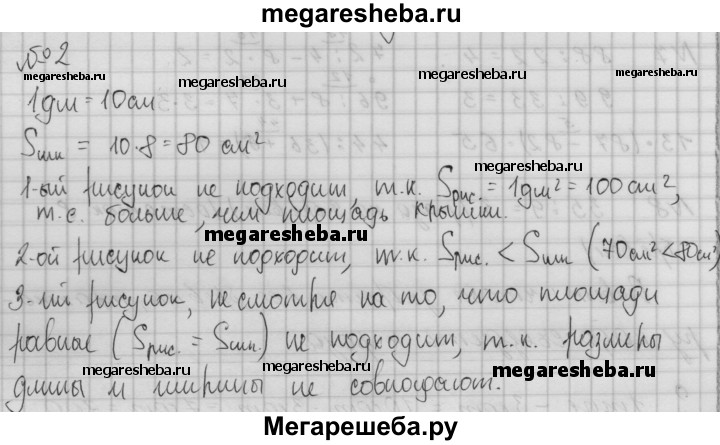 megaresheba.ru
№2
megaresheba.ru megaresheba.ru megaresheba.ru
1 дм = 10 см
Sшк = 10·8=80 см²
megaresheba.ru
1-ый рисунок не подходит, т.к. Sрис. = 1дм² = 100 см²,
т.е. больше, чем площадь крышки.
megaresheba.ru
2-ой рисунок не подходит, т.к. Sрис. < Sшк (70см² < 80см²)
3-ий рисунок, несмотря на то, что площади
равные (Sрис. = Sшк.) не подходит, т.к. размеры
megaresheba.ru megaresheba.ru megaresheba.ru
длины и ширины не совпадают.
Мегарешеба.ру